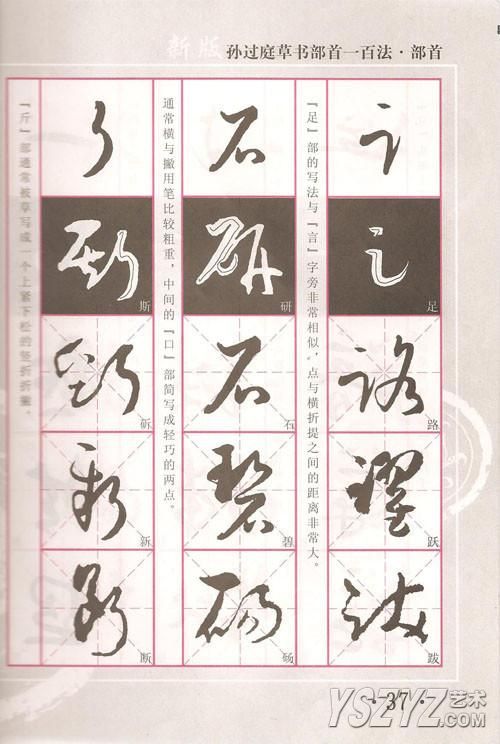 新版 孙过庭草书部首一百法·部首
『足』部的写法与『言』字旁非常相似，点与横折提之间的距离非常大。
足
路
跃
跋
通常横与撇用笔比较粗重，中间的『口』部简写成轻巧的两点。
研
石
碧
砀
『斤』部通常被草写成一个上紧下松的竖折折撇。
斯
斫
新
断
·37·
YSZYZ艺术
.com